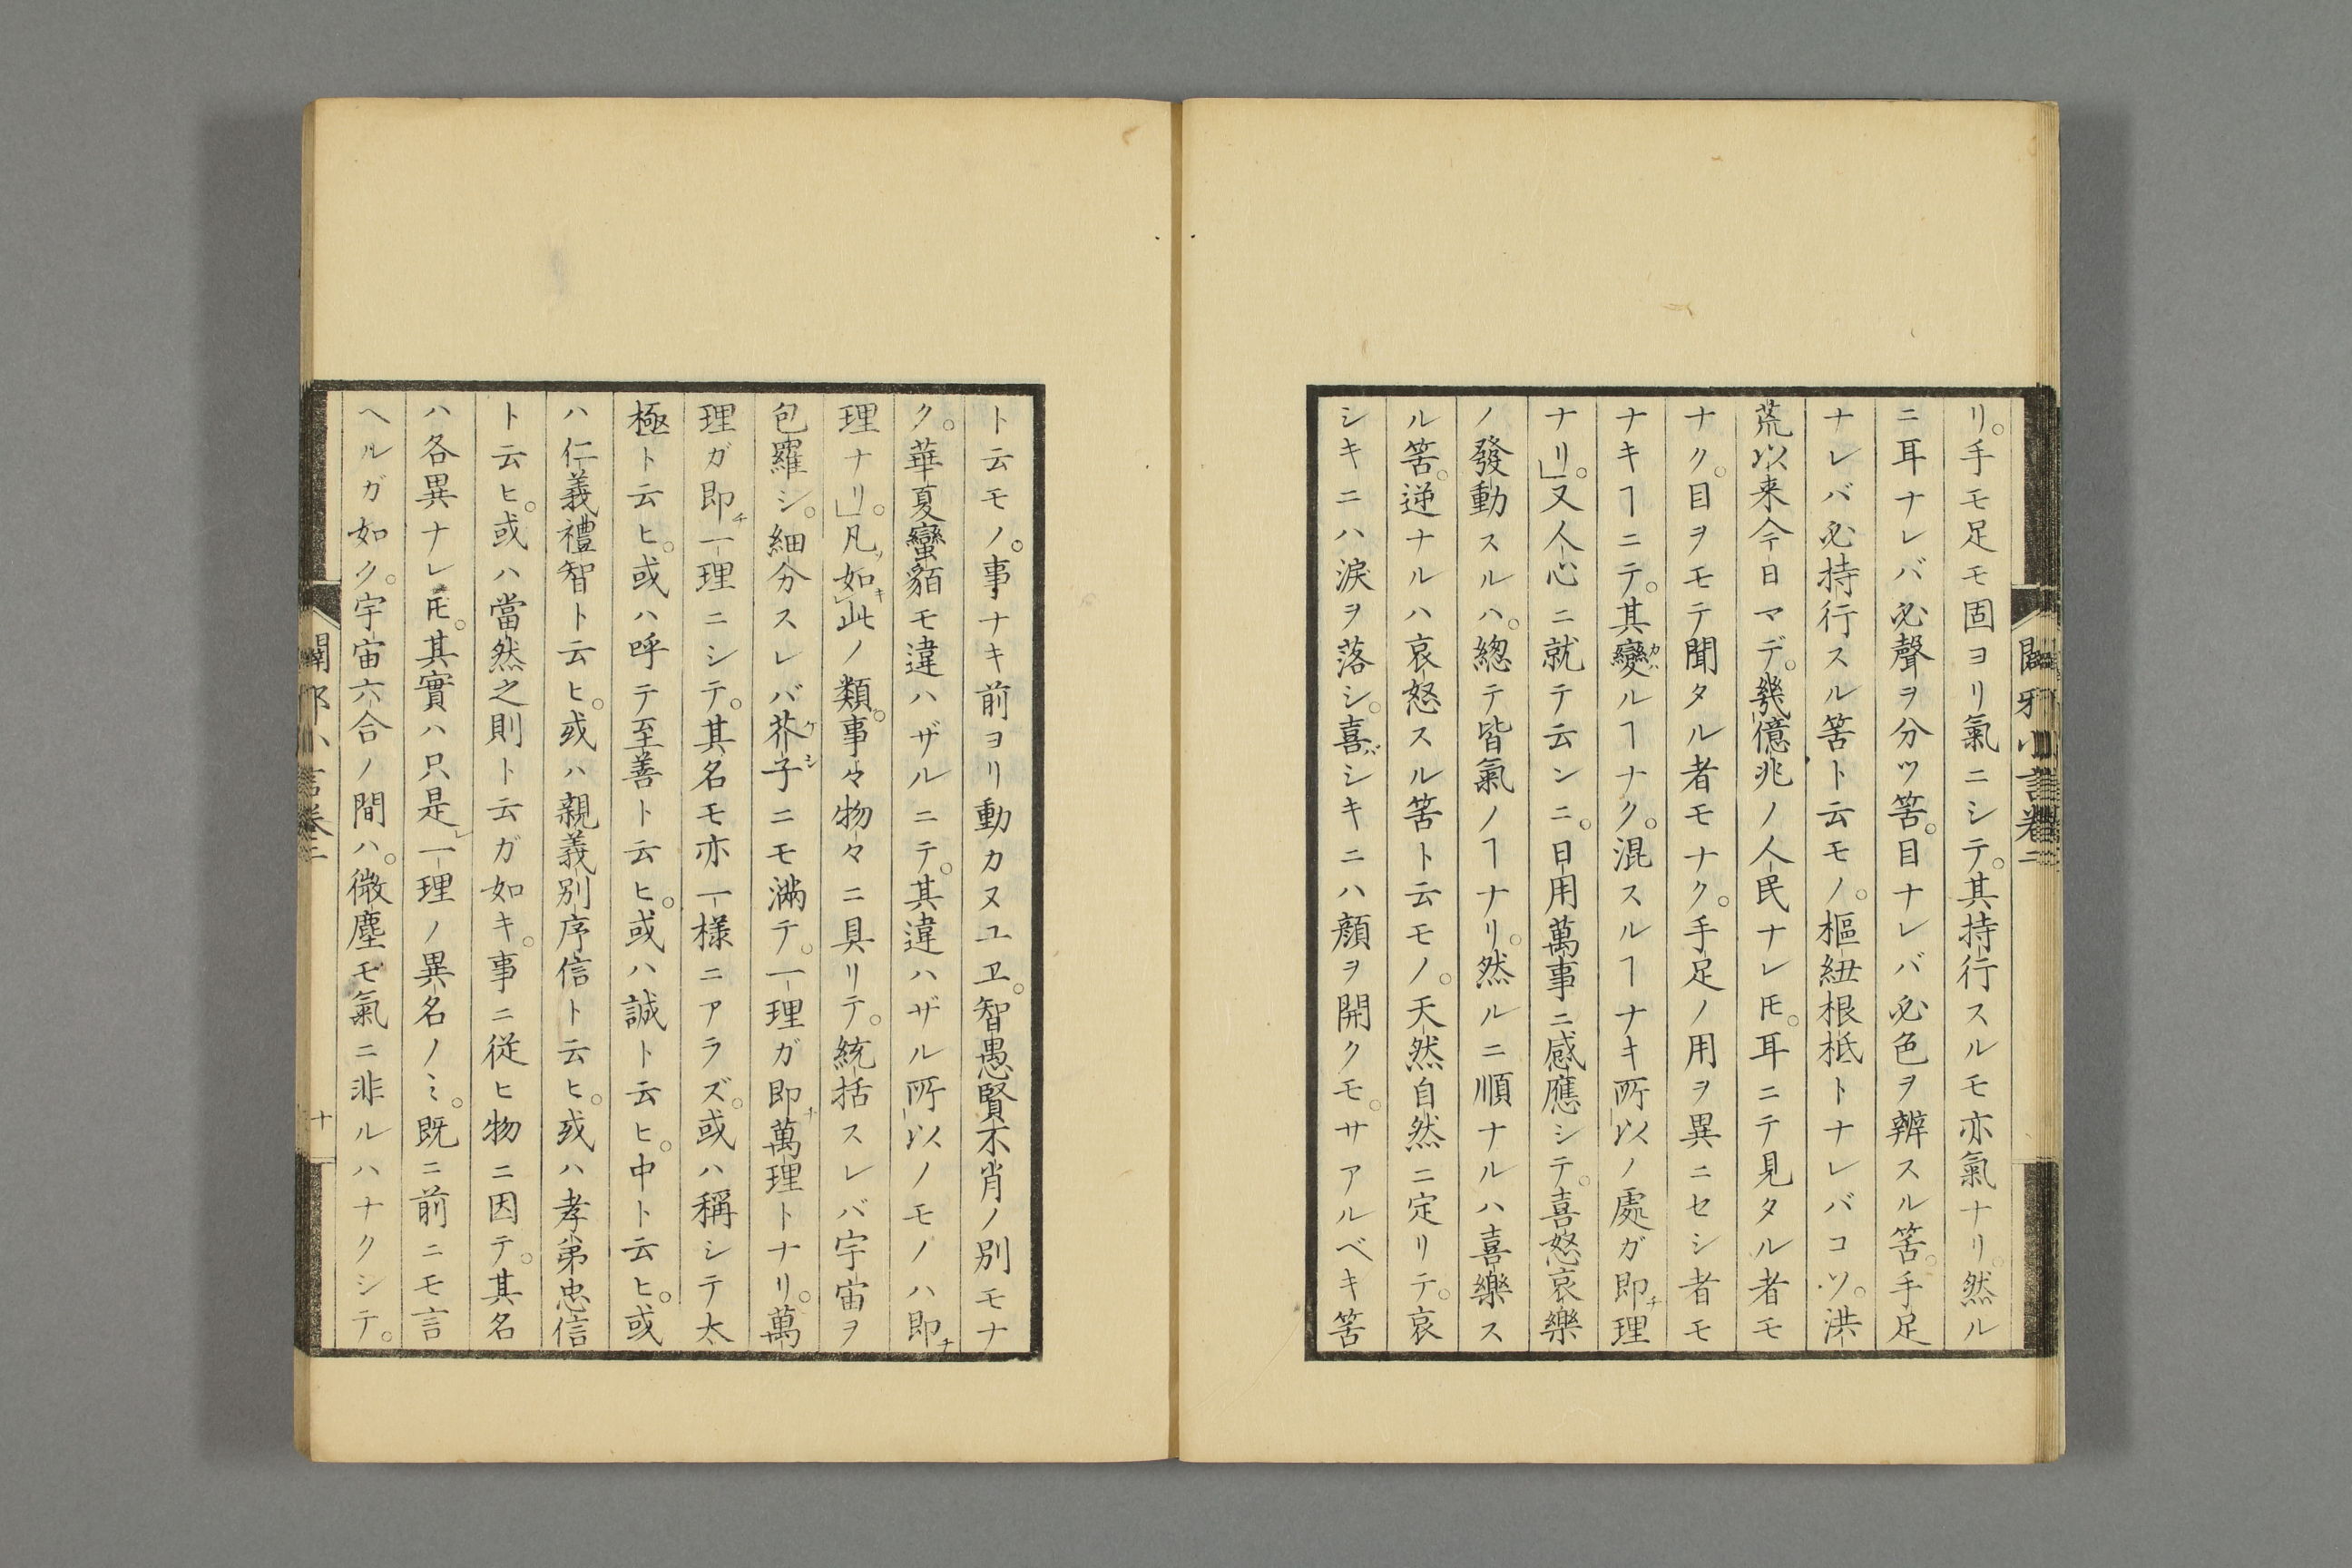 闢邪小言卷二
リ。手モ足モ固ヨリ氣ニシテ。其持行スルモ亦氣ナリ。然ル
ニ耳ナレバ必聲ヲ分ツ筈。目ナレバ必色ヲ辨スル筈。手足
ナレバ必持行スル筈ト云モノ。樞紐根柢トナレバコソ。洪
荒以来今日マデ。幾億兆ノ人民ナレ𪜈。耳ニテ見タル者モ
ナク。目ヲモテ聞タル者モナク。手足ノ用ヲ異ニセシ者モ
ナキヿニテ。其變カハルヿナク。混スルヿナキ所以ノ處ガ即チ理
ナリ。」又人心ニ就テ云ンニ。日用萬事ニ感應シテ。喜怒哀樂
ノ發動スルハ。總テ皆氣ノヿナリ。然ルニ順ナルハ喜樂ス
ル筈。逆ナルハ哀怒スル筈ト云モノ。天然自然ニ定リテ。哀
シキニハ涙ヲ落シ。喜バシキニハ顔ヲ開クモ。サアルベキ筈
ト云モノ。事ナキ前ヨリ動カヌユヱ。智愚賢不肖ノ別モナ
ク。華夏蠻貊モ違ハザルニテ。其違ハザル所以ノモノハ即チ
理ナリ。」凡ソ如キ此ノ類。事々物々ニ具リテ。統括スレバ宇宙ヲ
包羅シ。細分スレバ芥子ケシニモ滿テ。一理ガ即チ萬理トナリ。萬
理ガ即チ一理ニシテ。其名モ亦一樣ニアラズ。或ハ稱シテ太
極ト云ヒ。或ハ呼テ至善ト云ヒ。或ハ誠ト云ヒ。中ト云ヒ。或
ハ仁義禮智ト云ヒ。或ハ親義別序信ト云ヒ。或ハ孝弟忠信
ト云ヒ。或ハ當然之則ト云ガ如キ。事ニ従ヒ物ニ因テ。其名
ハ各異ナレ𪜈。其實ハ只是一理ノ異名ノミ。既ニ前ニモ言
ヘルガ如ク。宇宙六合ノ間ハ。微塵モ氣ニ非ルハナクシテ。
闢邪小言卷二
十